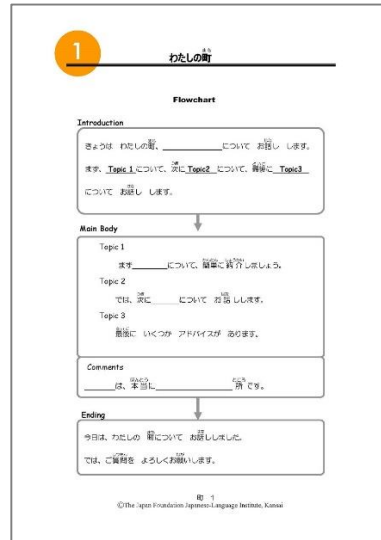 1
わたしの町
まち
Flowchart
Introduction
きょうは わたしの町、____________について お話し します。
まず、 Topic 1 について、次に Topic2 について、最後に Topic3
について お話し します。
Main Body
Topic 1
まず______について、簡単に紹介しましょう。
Topic 2
では、次に______について お話しします。
Topic 3
最後に いくつか アドバイスが あります。
Comments
______は、本当に______________所です。
Ending
今日は、わたしの 町について お話ししました。
では、ご質問を よろしくお願いします。
町 1
©The Japan Foundation Japanese-Language Institute, Kansai